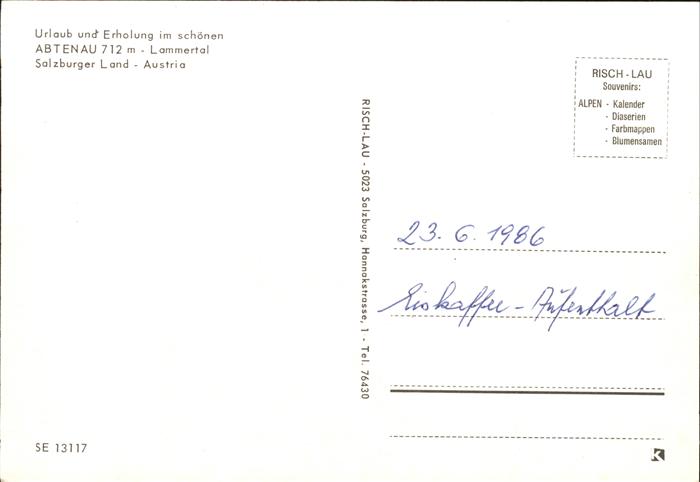 Urlaub und Erholung im schönen
ABTENAU 712 m - Lammertal
Salzburger Land - Austria
RISCH-LAU
Souvenirs:
ALPEN - Kalender
- Diaserien
- Farbmappen
- Blumensamen
RISCH-LAU - 5023 Salzburg, Hannakstrasse, 1 - Tel. 76430
23. 6. 1986
Eiskaffee - Aufenthalt
SE 13117
K